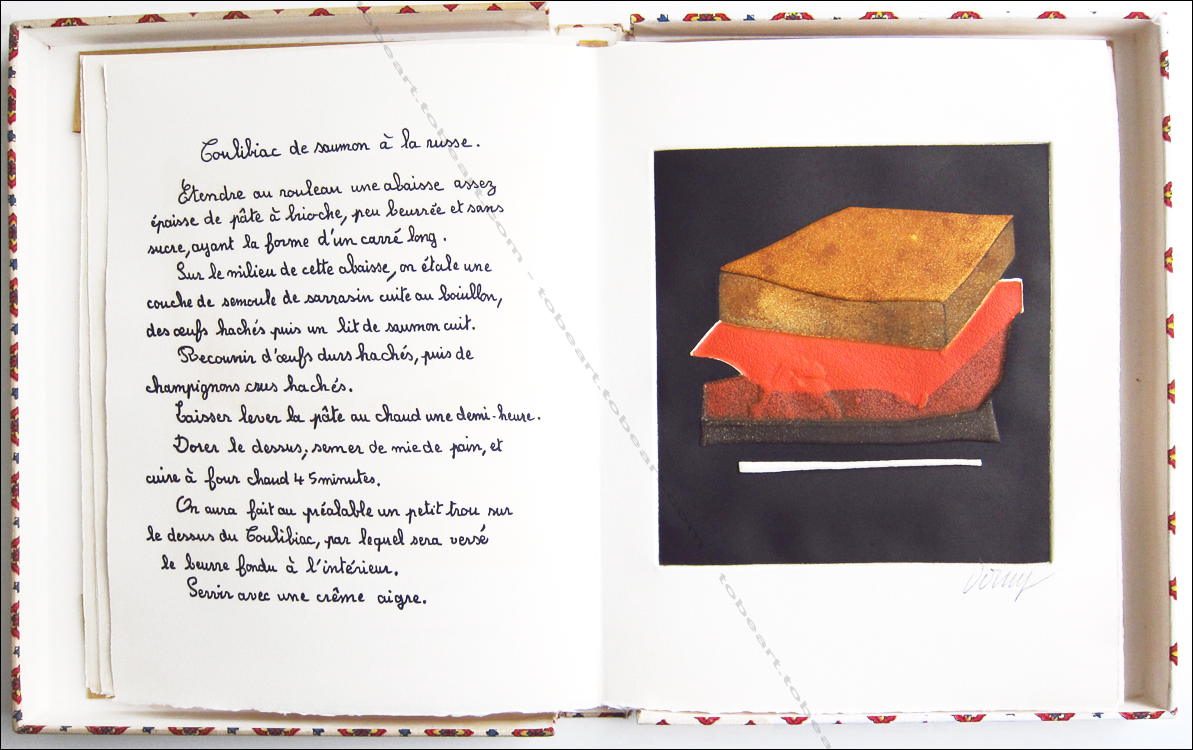 Coulibiac de saumon à la russe.
Etendre au rouleau une abaisse assez
épaisse de pâte à brioche, peu beurrée et sans
sucre, ayant la forme d'un carré long.
Sur le milieu de cette abaisse, on étale une
couche de semoule de sarrasin cuite au bouillon,
des œufs hachés puis un lit de saumon cuit.
Recouvrir d'œufs durs hachés, puis de
champignons crus hachés.
Laisser lever la pâte au chaud une demi-heure.
Dorer le dessus, semer de mie de pain, et
cuire à four chaud 45 minutes.
On aura fait au préalable un petit trou sur
le dessus du Coulibiac, par lequel sera versé
le beurre fondu à l'intérieur.
Servir avec une crême aigre.
tobeart.com - tobeart.com - tobeart.com - tobeart.com